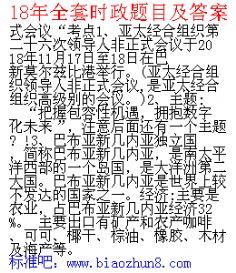 18年全套时政题目及答案
式会议“考点1、亚太经合组织第
二十六次领导人非正式会议于20
18年11月17日至18日在巴
新莫尔兹比港举行。(亚太经合组
织领导人非正式会议,是亚太经合
组织高级别的会议。)2、主题:
“把握包容性机遇,拥抱数字
化未来”,注意后面还有一个主题
?!3、巴布亚新几内亚独立国
,简称巴布亚新几内亚,是南太平
洋西部的一个岛国,是大洋洲第二
大国。巴布亚新几内亚是世界上较
不发达的国家之一。经济:主要是
农业,占巴布亚新几内亚经济32
%。主要出口有矿产和农产咖啡
、可可、椰干、棕油、橡胶、木材
及海产等。
标准吧。www.biaozhun8.com